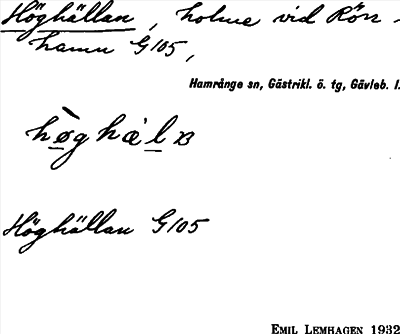 Höghällan, holme vid Rön-
hamn G105,
Hamrånge sn, Gästrikl. ö. tg, Gävleb. l.
hø̀ghæ̀lɐ
Höghällan G105
EMIL LEMHAGEN 1932